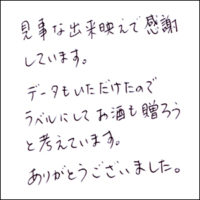 見事な出来映えで感謝
しています。
データもいただけたので
ラベルにしてお酒も贈ろう
と考えています。
ありがとうございました。